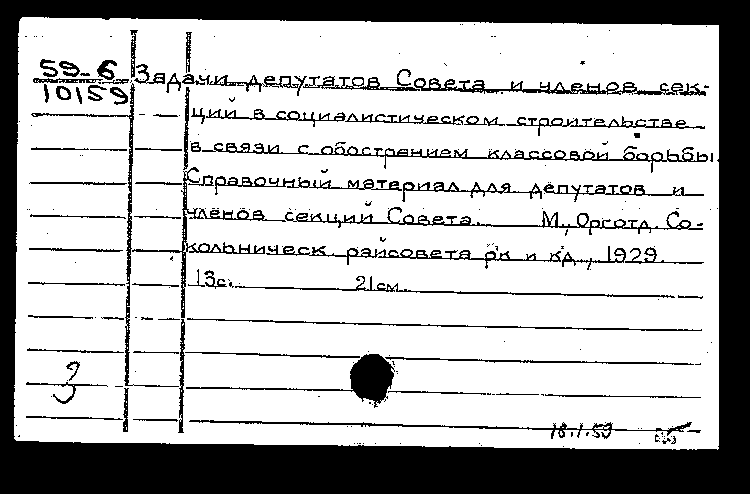 59-6
10159
Задачи депутатов Совета и членов сек-
ций в социалистическом строительстве
в связи с обострением классовой борьбы.
Справочный материал для депутатов и
членов секций Совета. М., Орготд. Со-
кольническ. райсовета рк и кд, 1929.
13с. 21см.
З
18.1.59